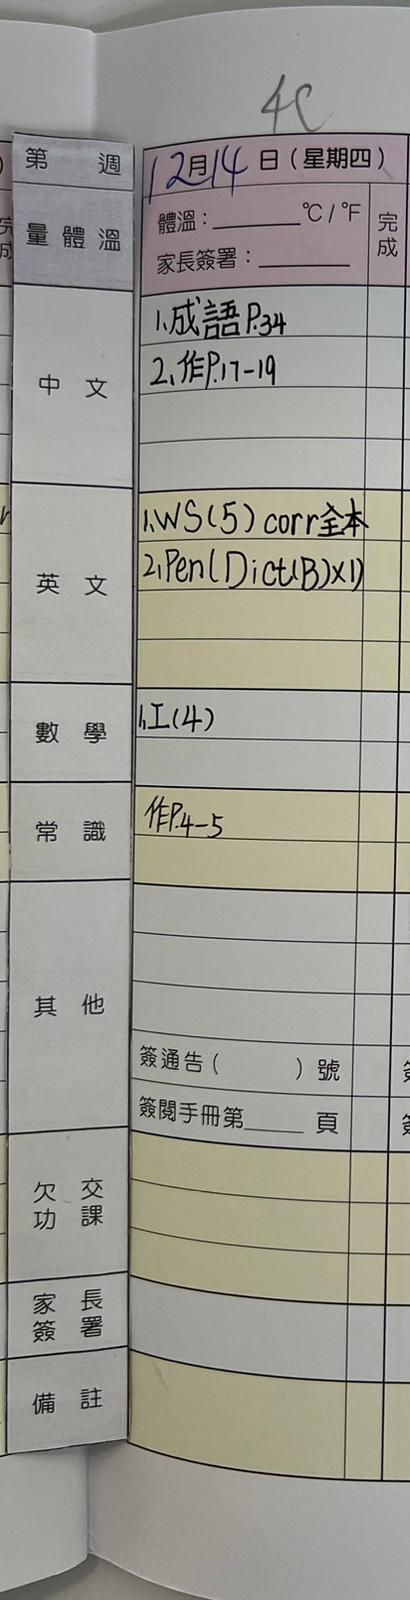 4C
第 週
12月14日(星期四)
量 體 溫
體溫：______℃/℉
完成
家長簽署：______
中 文
1.成語P.34
2.作P.17-19
英 文
1.WS(5) corr全本
2.Pen(Dict(B)x1)
數 學
1.工(4)
常 識
作P.4-5
其 他
簽通告( )號
簽閱手冊第____頁
欠 交
功 課
家 長
簽 署
備 註